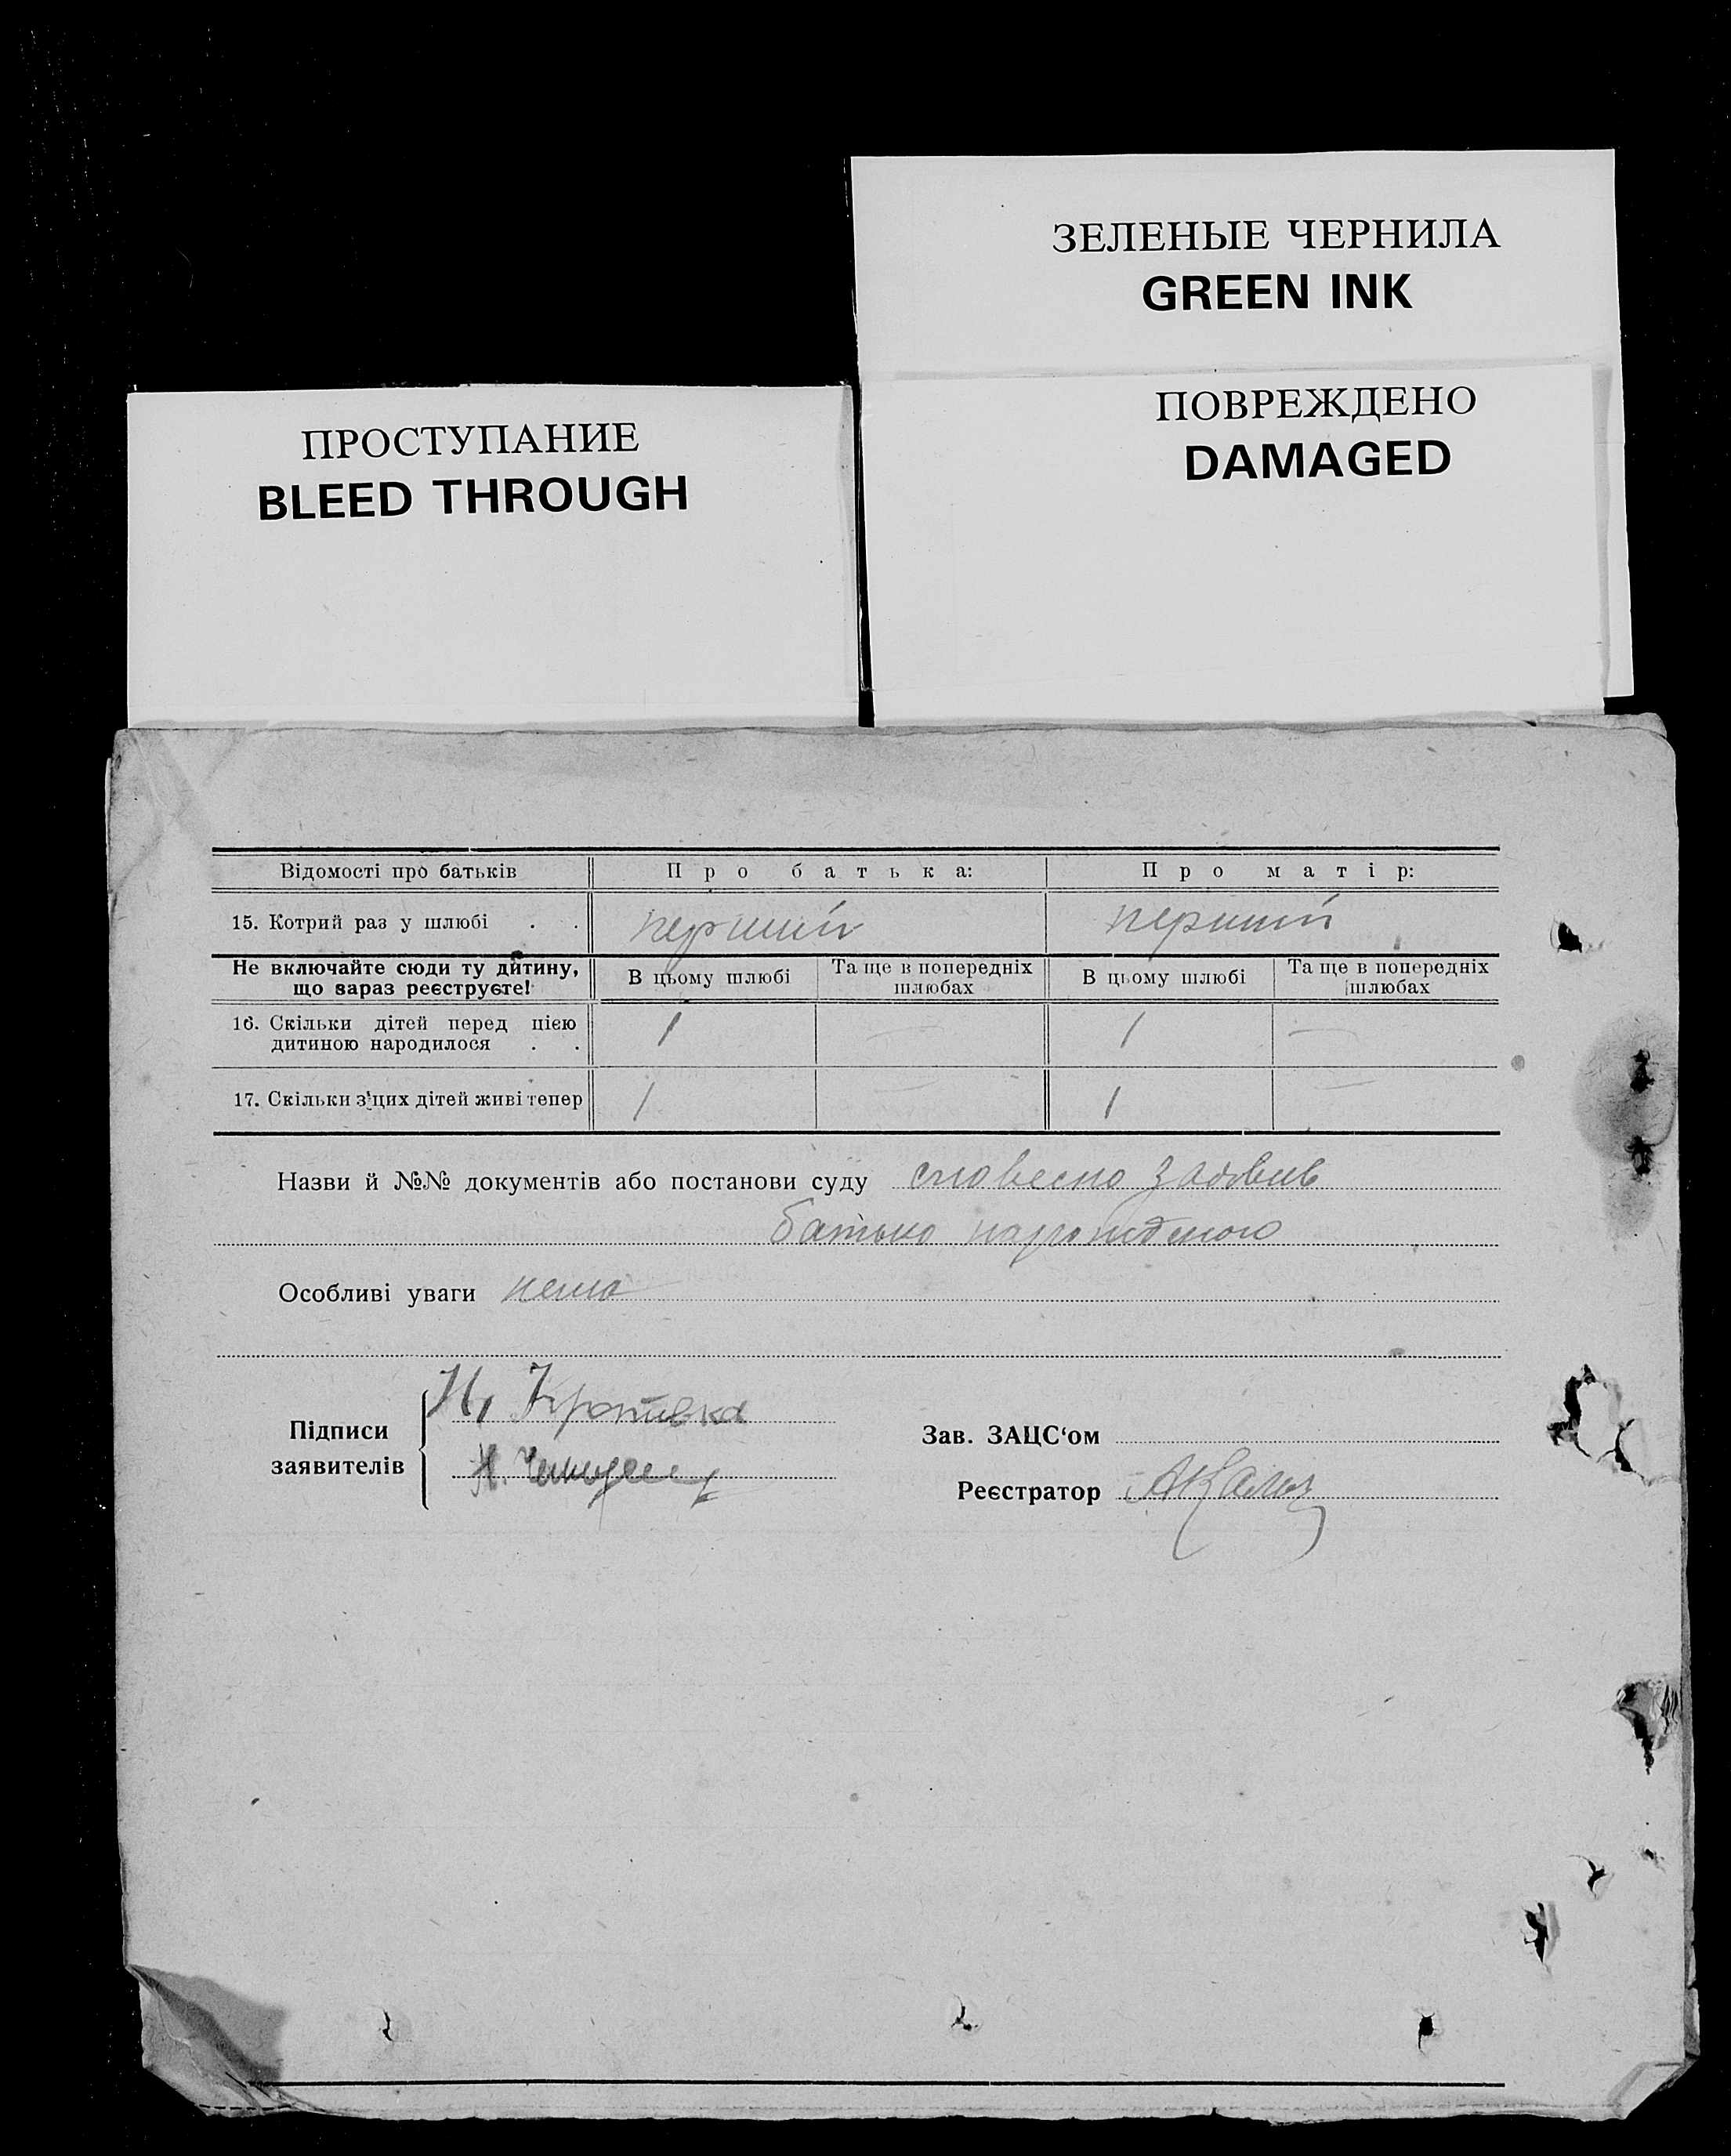 ЗЕЛЕНЫЕ ЧЕРНИЛА
GREEN INK
ПОВРЕЖДЕНО
DAMAGED
ПРОСТУПАНИЕ
BLEED THROUGH
Відомості про батьків Про батька: Про матір:
15. Котрий раз у шлюбі . . перший перший
Не включайте сюди ту дитину, що зараз реєструєте! В цьому шлюбі Та ще в попередніх шлюбах В цьому шлюбі Та ще в попередніх шлюбах
16. Скільки дітей перед цією
дитиною народилося . . 1 — 1 —
17. Скільки з цих дітей живі тепер 1 — 1 —
Назви й №№ документів або постанови суду словесно заявив
батько
Особливі уваги нема
Підписи
заявителів
Зав. ЗАЦС‘ом
Реєстратор